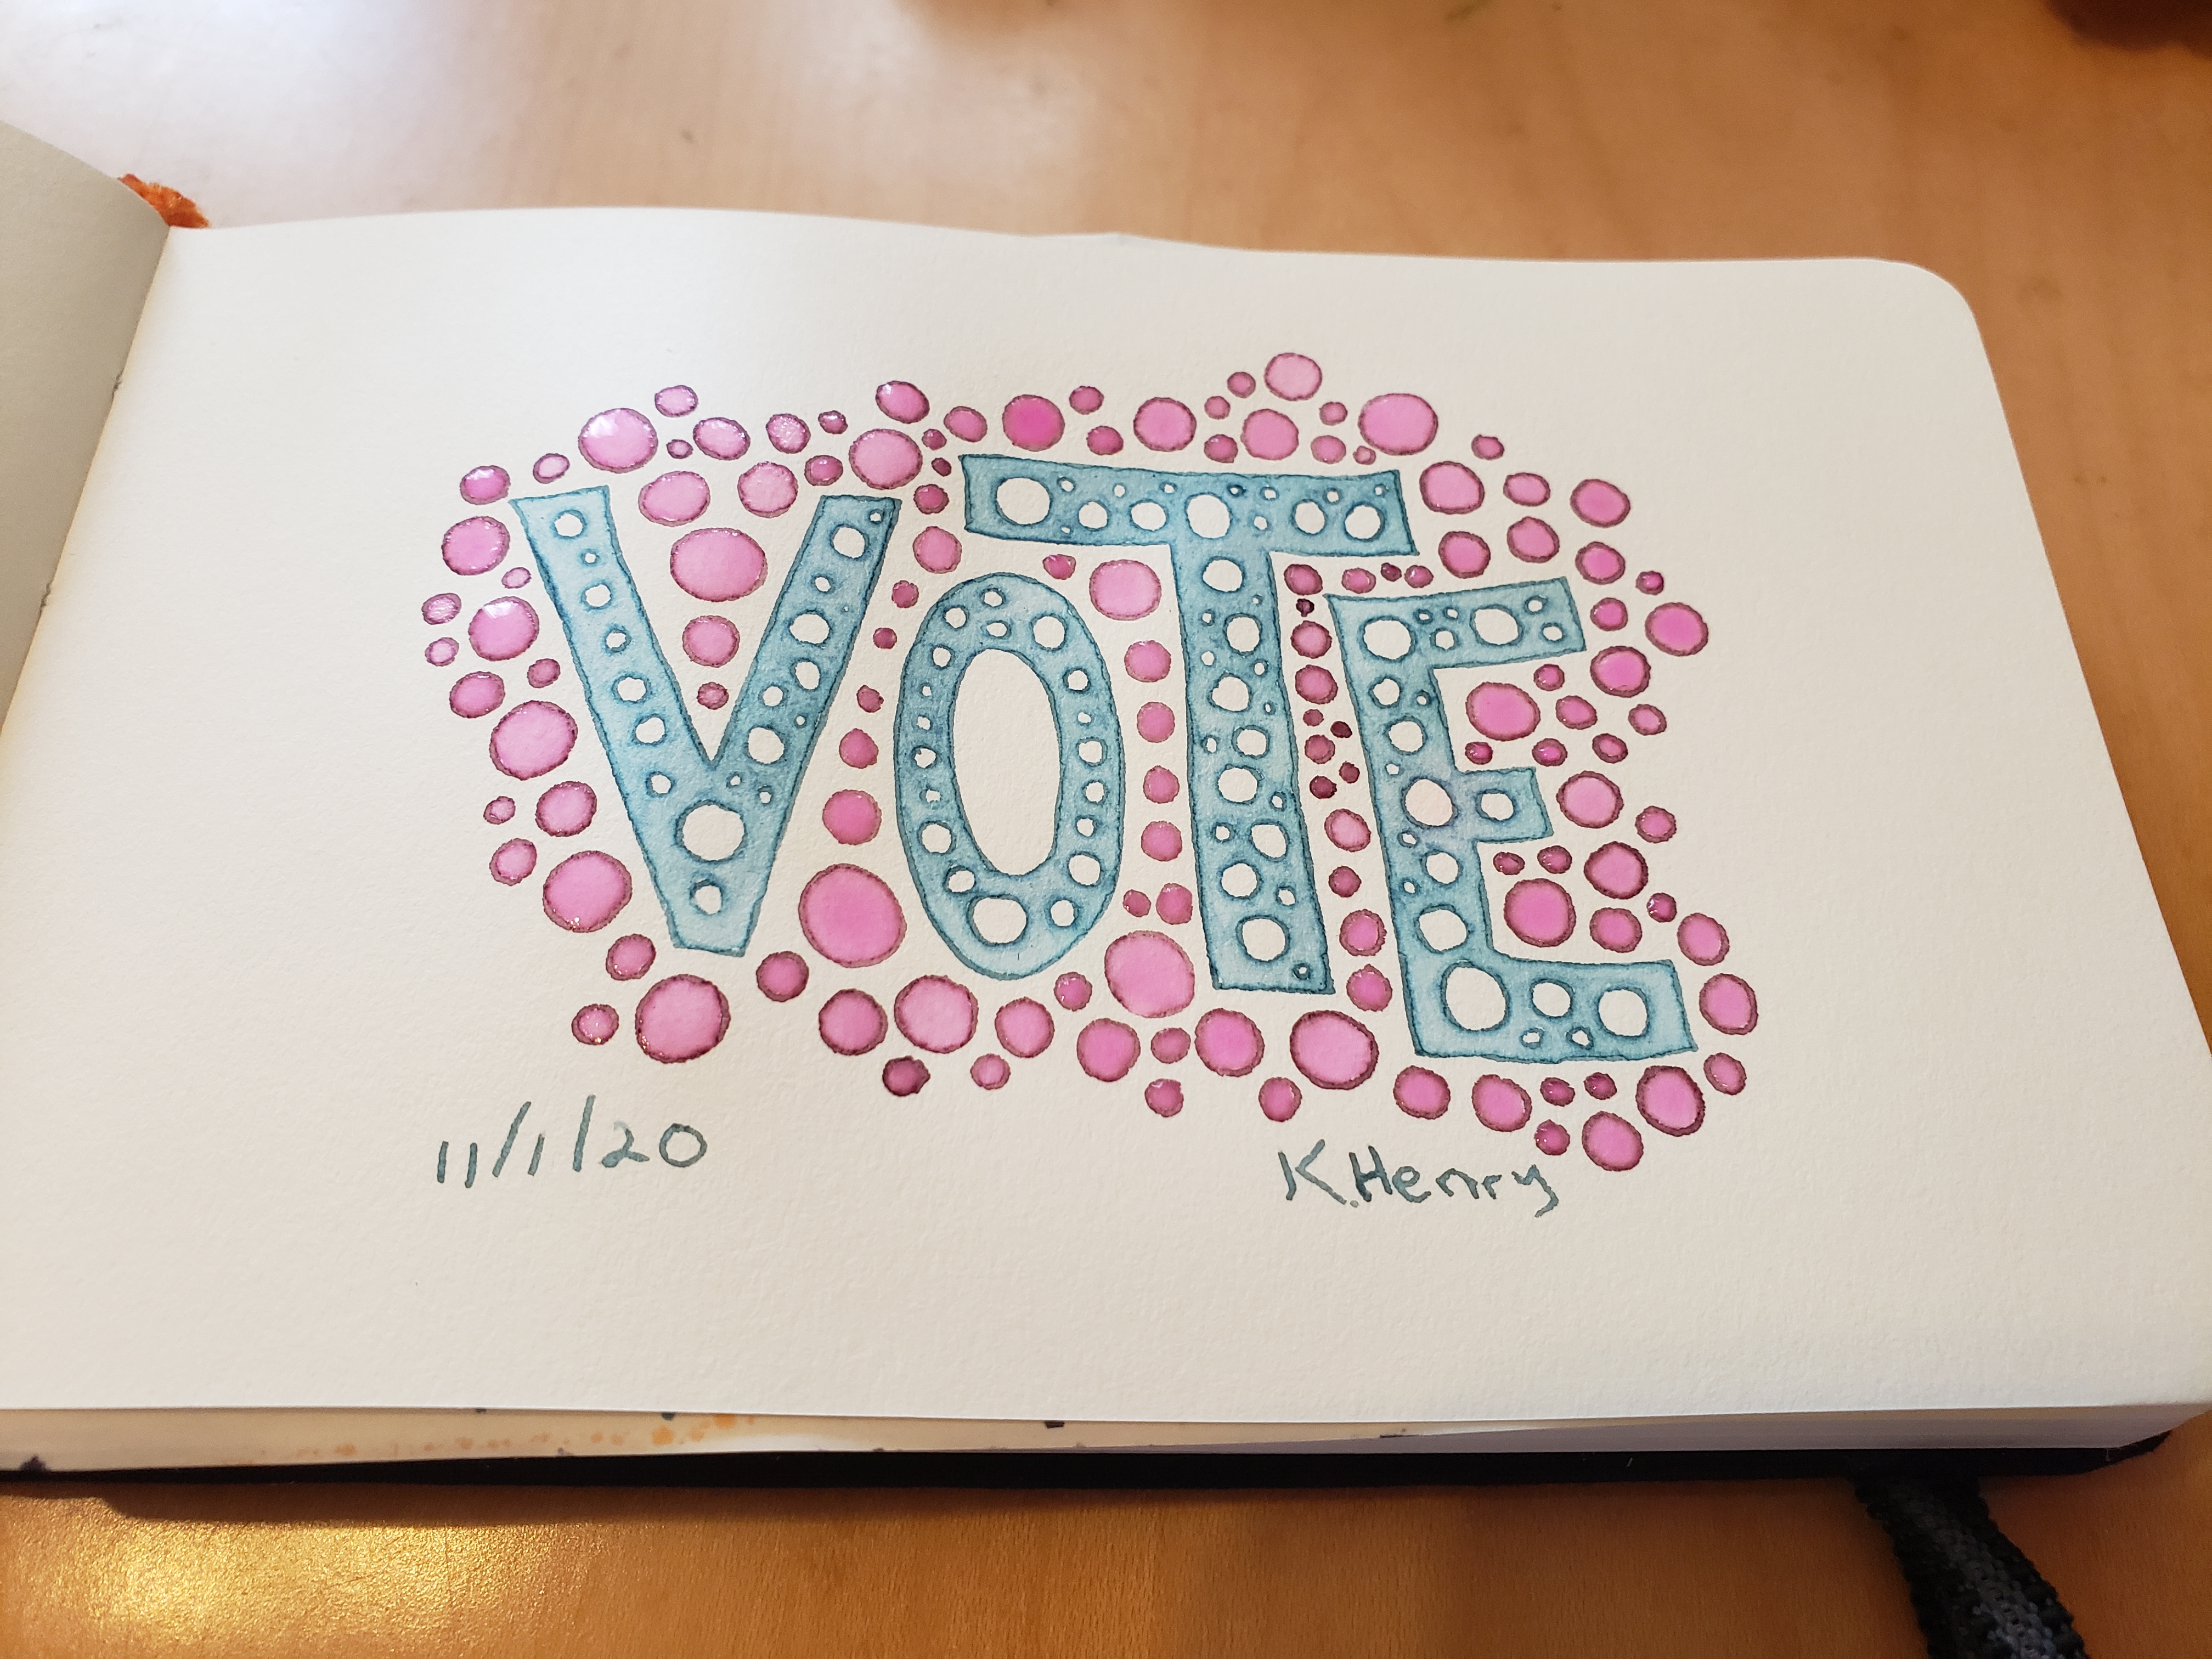 VOTE
11/1/20
K.Henry